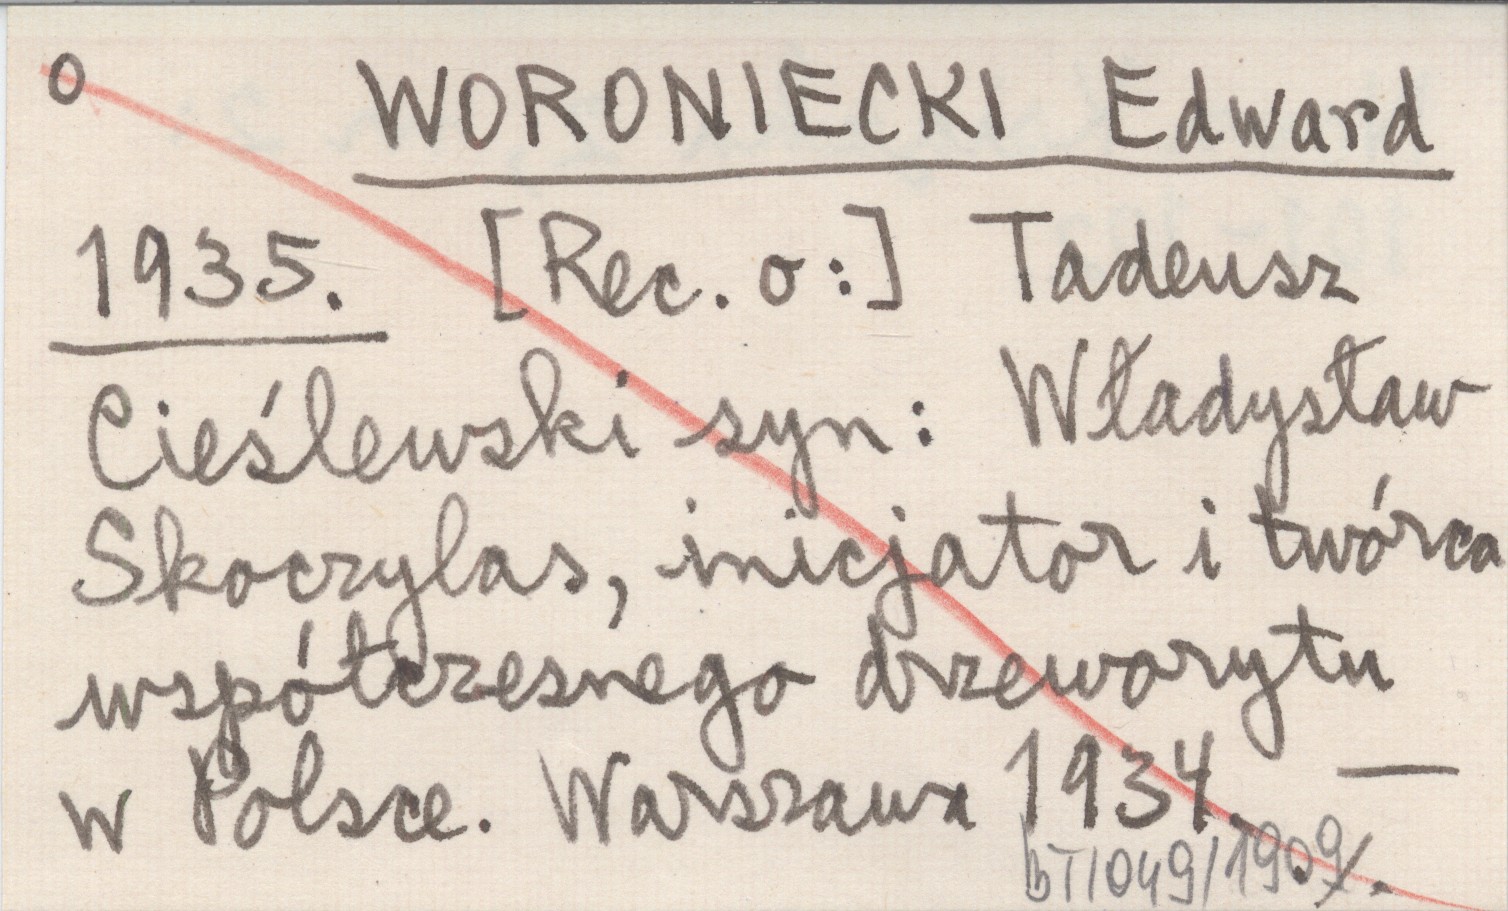 o WORONIECKI Edward
1935. [Rec. o:] Tadeusz
Cieślewski syn: Władysław
Skoczylas, inicjator i twórca
współczesnego drzeworytu
w Polsce. Warszawa 1934. —